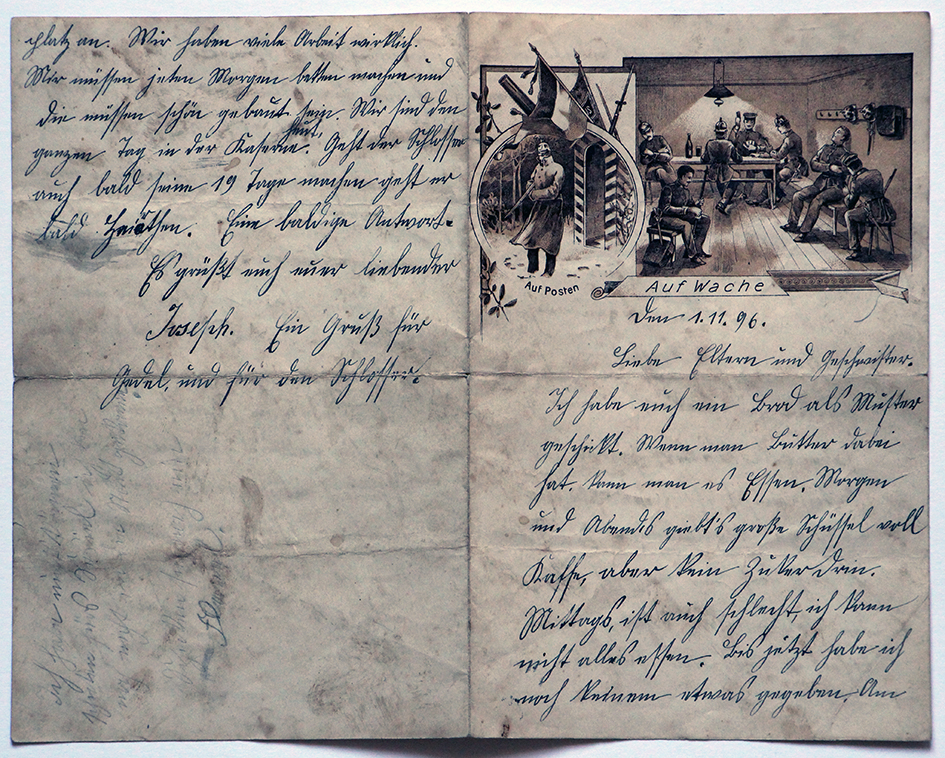 platz an. Wir haben viele Arbeit wirklich.
Wir müssen jeden Morgen betten machen und
die müssen schön gebaut sein. Wir sind den
ganzen Tag in der Kaserne. Geht der Schlosser
auch bald seine 19 Tage machen geht er
bald Heirathen. Eine baldige Antwort.
Es grüßt euch euer liebender
Joseph. Ein Gruß für
Gedel, und für den Schlosser.
Auf Posten
Auf Wache
Den 1.11.96.
Liebe Eltern und Geschwister.
Ich habe euch ein Brod als Muster
geschikt. Wenn man Butter dabei
hat, kann man es Essen. Morgen
und Abends giebt's große Schüssel voll
Kaffe, aber kein Zuker drin.
Mittags, ist auch schlecht, ich kann
nicht alles essen. Bis jetzt habe ich
noch keinem etwas gegeben. Am